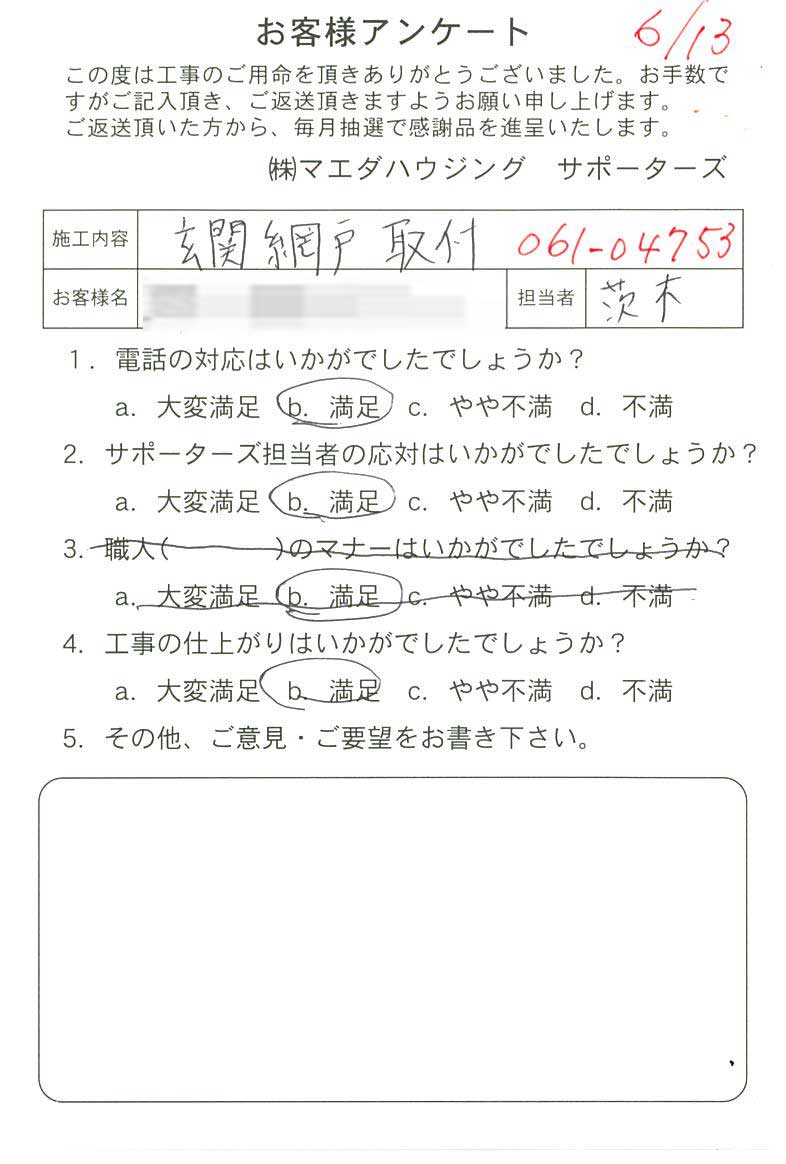 お客様アンケート 6/13
この度は工事のご用命を頂きありがとうございました。お手数で
すがご記入頂き、ご返送頂きますようお願い申し上げます。
ご返送頂いた方から、毎月抽選で感謝品を進呈いたします。
㈱マエダハウジング　サポーターズ
施工内容 玄関網戸取付 061-04753
お客様名 担当者 茨木
1. 電話の対応はいかがでしたでしょうか？
a. 大変満足 b. 満足 c. やや不満 d. 不満
2. サポーターズ担当者の応対はいかがでしたでしょうか？
a. 大変満足 b. 満足 c. やや不満 d. 不満
3. 職人(　　　　)のマナーはいかがでしたでしょうか？
a. 大変満足 b. 満足 c. やや不満 d. 不満
4. 工事の仕上がりはいかがでしたでしょうか？
a. 大変満足 b. 満足 c. やや不満 d. 不満
5. その他、ご意見・ご要望をお書き下さい。